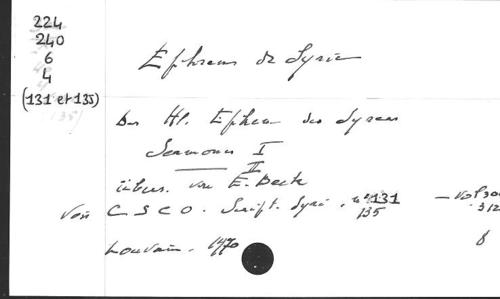 224
240
6
4
(131 et 135)
Ephraem de Syrie
Des Hl. Ephraem des Syrers
Sermones I
II
übers. von E. Beck
Voir C S C O. Script. Syri. n° 131 — Vol 30
135 312
Louvain. 1970 8